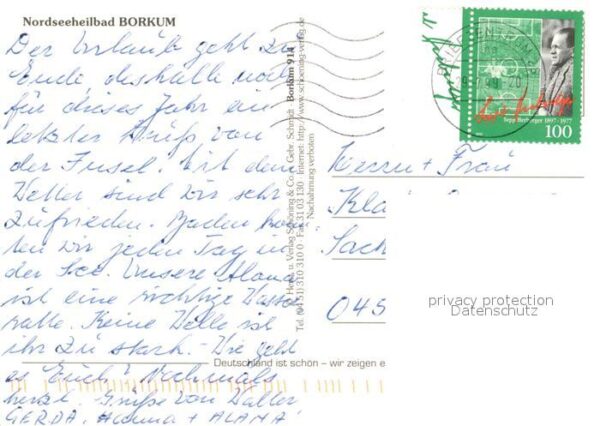 Nordseeheilbad BORKUM
Der Urlaub geht zu
Ende, deshalb noch
für dieses Jahr ein
letzter Gruß von
der Insel. Mit dem
Wetter sind wir sehr
zufrieden. Baden konn
ten wir jeden Tag in
der See. Unsere Alana
ist eine richtige Wasser
ratte. Keine Welle ist
ihr zu stark. Wie geht
es Euch? Nochmals
herzl. Grüße von Walter
GERDA, + ALANA
Herst. u. Verlag Schöning & Co + Gebr. Schmidt Borkum 914
Tel. (0451) 310 310 0 · Fax 31 03 130 · Internet: http://www.schoening-verlag.de
Nachahmung verboten
Sepp Herberger 1897 - 1977
100
Herrn + Frau
Kla
Sach
045
privacy protection
Datenschutz
Deutschland ist schön – wir zeigen e